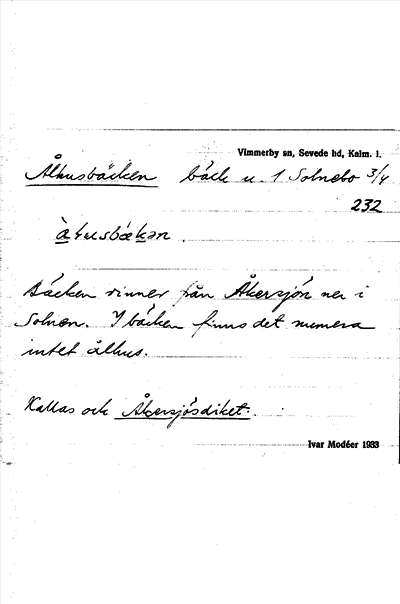 Vimmerby sn, Sevede hd, Kalm. l.
Ålhusbäcken bäck u. 1 Solnebo 3/4
232
Bäcken rinner från Åkersjön ner i
Solnen. I bäcken finns det numera
intet ålhus.
Kallas och Åkersjösdiket.
Ivar Modéer 1933